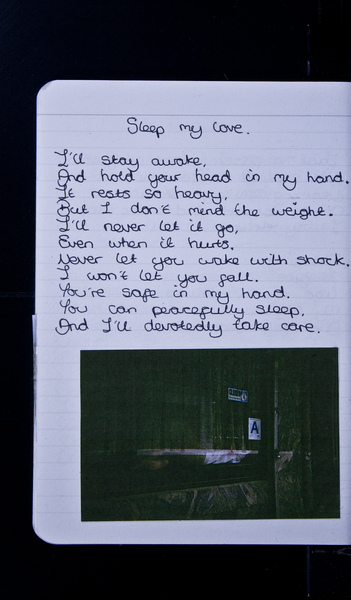 Sleep my love.
I'll stay awake,
And hold your head in my hand.
It rests so heavy,
But I don't mind the weight.
I'll never let it go,
Even when it hurts.
Never let you wake with shock.
I won't let you fall.
You're safe in my hand.
You can peacefully sleep,
And I'll devotedly take care.
A